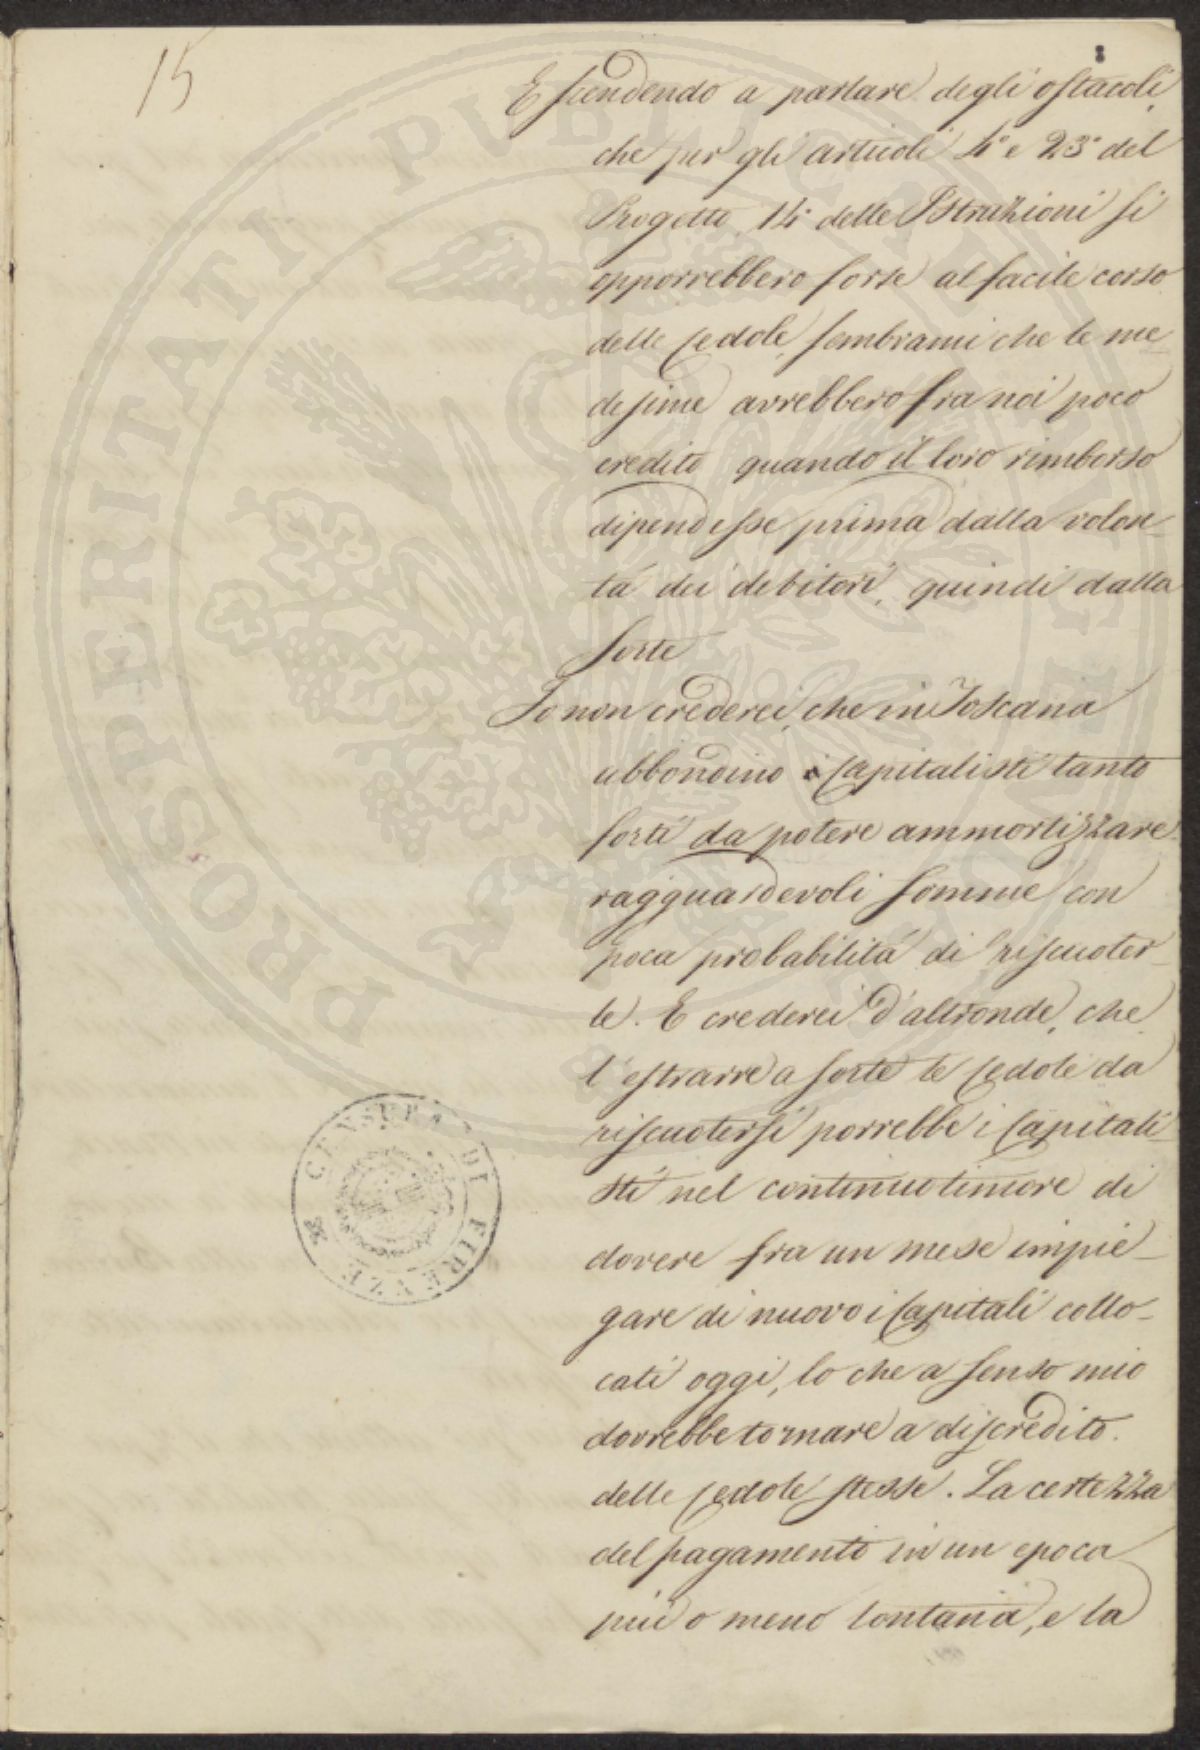 15
E scendendo a parlare degli ostacoli,
che per gli articoli 4° e 23° del
Progetto 14° delle Istruzioni si
opporrebbero forse al facile corso
delle cedole, sembrami che le me-
desime avrebbero fra noi poco
credito quando il loro rimborso
dipendesse prima dalla volon-
tà dei debitori, quindi dalla
sorte
Io non crederei, che in Toscana
abbondino i Capitalisti tanto
forti da potere ammortizzare
ragguardevoli somme con
poca probabilità di riscuoter-
le. E crederei d'altronde, che
l'estrarre a sorte le cedole da
riscuotersi porrebbe i Capitali-
sti nel continuo timore di
dovere fra un mese impie-
gare di nuovo i Capitali collo-
cati oggi, lo che a senso mio
dovrebbe tornare a discredito
delle cedole stesse. La certezza
del pagamento in un epoca
più o meno lontana, e la
CENSURA DI FIRENZE
PROSPERITATI PUBLICAE